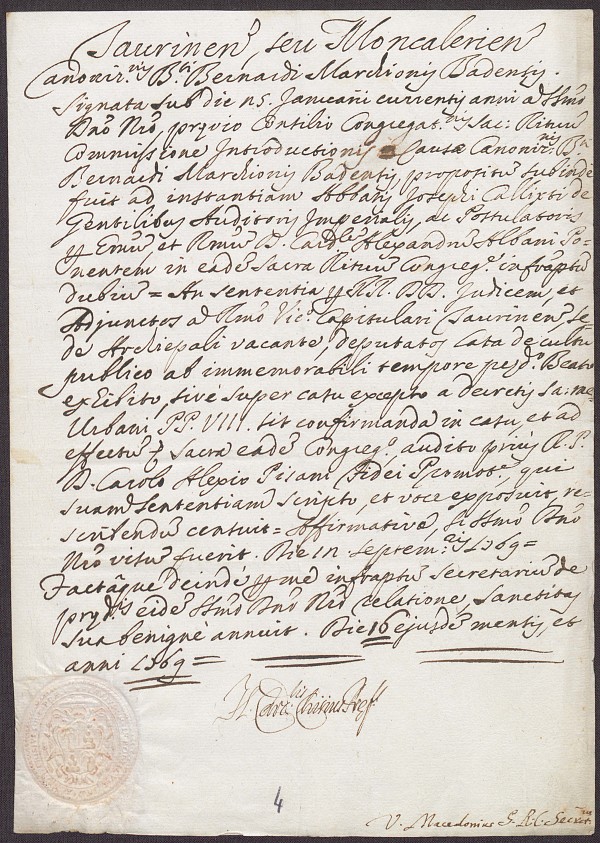 Taurinen, seu Moncalerien
Canoniz.nis B.ti Bernardi Marchionis Badensis.
Signata sub die 15. Januarii currentis anni a SSmo
Dno Nro, prævio Consilio Congregat.nis Sac: Rituum
Commissione Introductionis Causæ Canoniz.nis B.ti
Bernardi Marchionis Badensis, propositum subinde
fuit ad instantiam Abbatis Josephi Callixti de
Gentilibus Auditoris Imperialis, ac Postulatoris
per Emum, et Rmum D. Card.lem Alexandrum Albani Po-
nentem in eadem Sacra Rituum Congreg.e infraptum
dubium = An sententia per RR. DD. Judicem, et
Adjunctos a Rmo Vic.o Capitulari Taurinen, Se-
de Archiepali vacante, deputatos lata de cultu
publico ab immemorabili tempore pred.o Beato
exhibito, sive super casu excepto a decretis sa: me:
Urbani PP. VIII. sit confirmanda in casu, et ad
effectum &c. Sacra eadem Congreg.o audito prius R. P.
D. Carolo Alexio Pisani Fidei Promot.e, qui
suam sententiam scripto, et voce exposuit, re-
scribendum censuit = Affirmative, si SSmo Dno
Nro visum fuerit. Die 12 Septem:ris 1769 =
Factaque deinde per me infraptum Secretarium de
præd.is eidem SSmo Dno Nro relatione, Sanctitas
sua benigne annuit. Die 16 ejusdem mensis, et
anni 1769 =
Præf.
4
V. Macedonius S. R. C. Secret.us